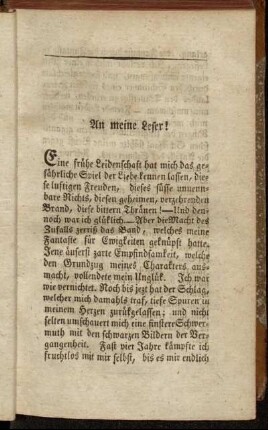 An meine Leser!
Eine frühe Leidenschaft hat mich das ge-
fährliche Spiel der Liebe kennen lassen, die-
se lustigen Freuden, dieses süsse unnenn-
bare Nichts, diesen geheimen, verzehrenden
Brand, diese bittern Thränen! — Und den-
noch war ich glüklich. — Aber die Macht des
Zufalls zerriß das Band, welches meine
Fantasie für Ewigkeiten geknüpft hatte.
Jene äuserst zarte Empfindsamkeit, welche
den Grundzug meines Charakters aus-
macht, vollendete mein Unglük. Ich war
wie vernichtet. Noch bis jezt hat der Schlag,
welcher mich damahls traf, tiefe Spuren in
meinem Herzen zurükgelassen; und nicht
selten umschauert mich eine finstere Schwer-
muth mit den schwarzen Bildern der Ver-
gangenheit. Fast vier Jahre kämpfte ich
fruchtlos mit mir selbst, bis es mir endlich